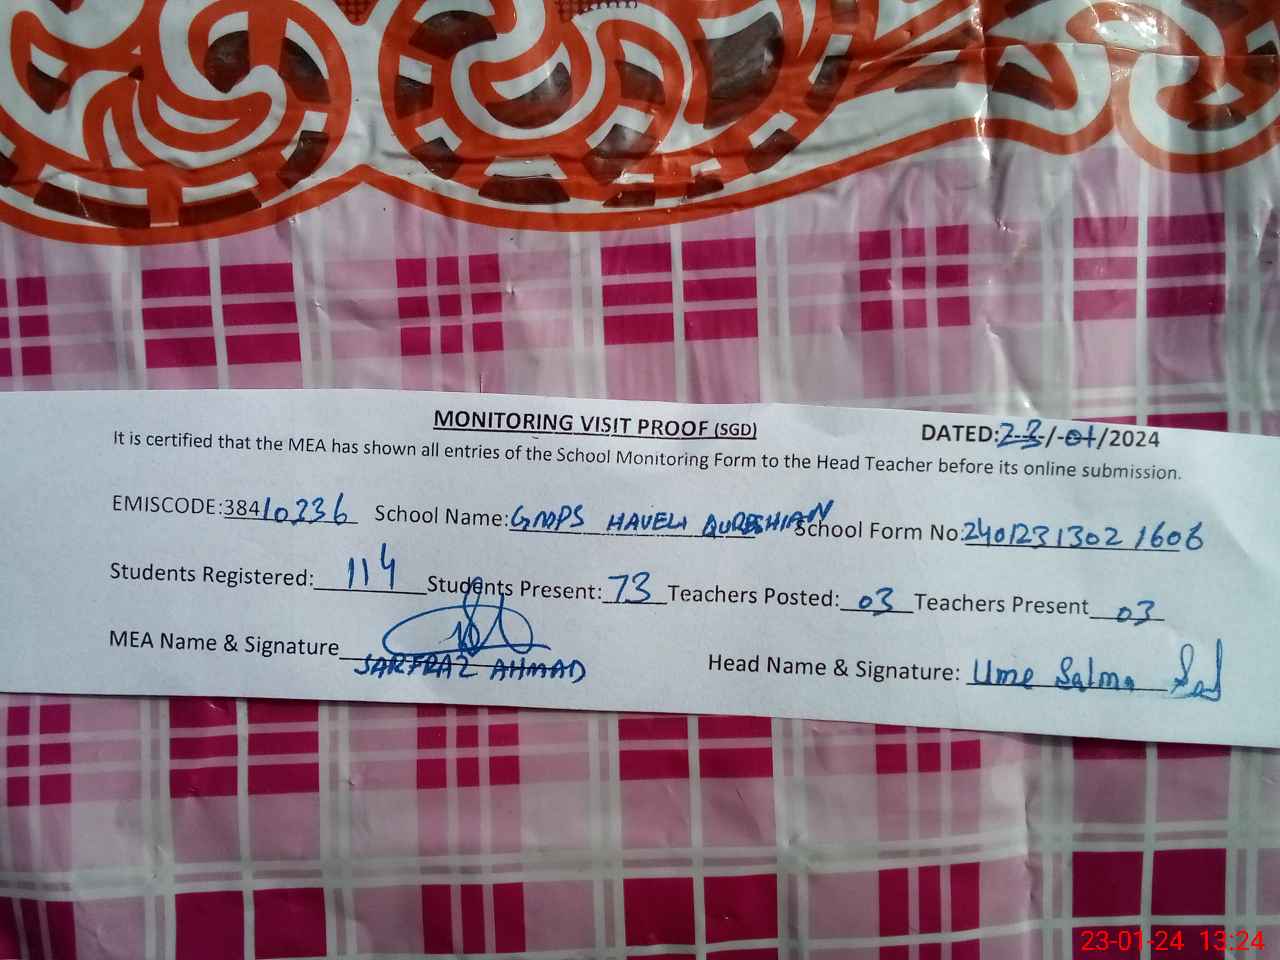 MONITORING VISIT PROOF (SGD) DATED:23/-01/2024
It is certified that the MEA has shown all entries of the School Monitoring Form to the Head Teacher before its online submission.
EMISCODE:38410336 School Name: GMPS HAVELI QURESHIAN School Form No:2401231302 1606
Students Registered: 114 Students Present: 73 Teachers Posted: 03 Teachers Present 03
MEA Name & Signature SARFRAZ AHMAD Head Name & Signature: Ume Salma
23-01-24 13:24